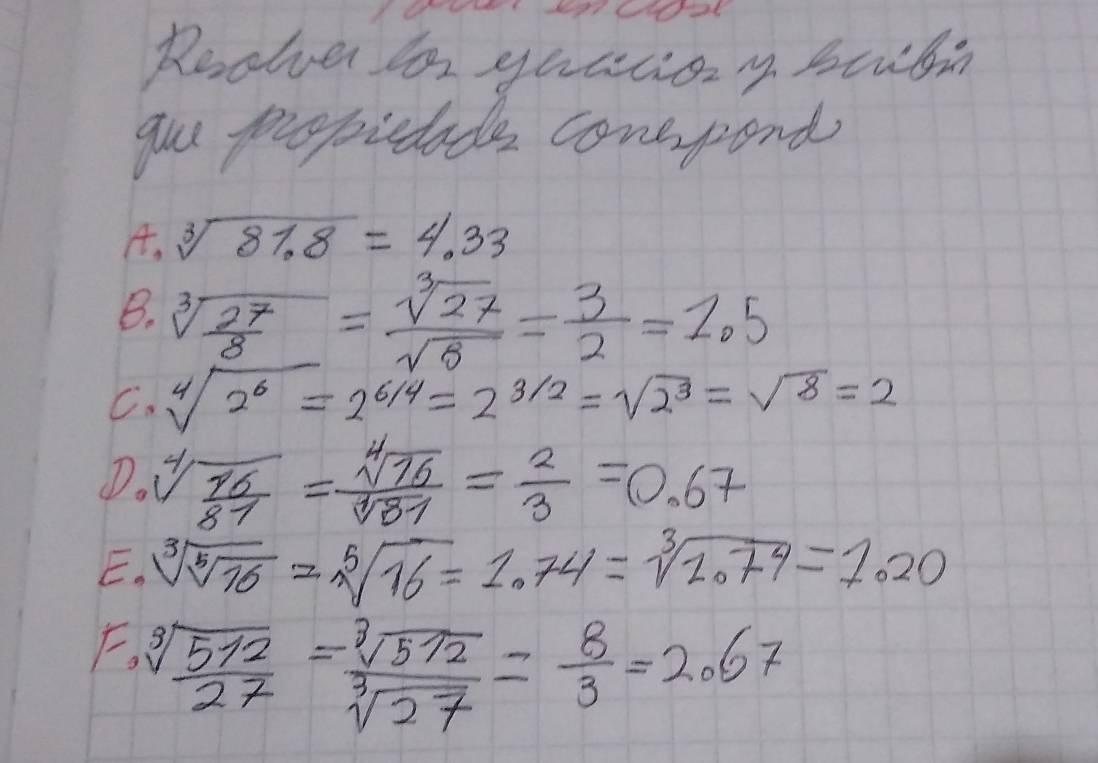 Resolver los ejercicios y escribir
que propiedades correspond
A. ∛81.8 = 4.33
B. ∛(27/8) = ∛27/√8 = 3/2 = 1.5
C. ∜2⁶ = 2^6/4 = 2^3/2 = √2³ = √8 = 2
D. ∜(16/81) = ∜16/∜81 = 2/3 = 0.67
E. ∛⁵√16 = ⁵√16 = 1.74 = ∛1.74 = 1.20
F. ∛(512/27) = ∛512/∛27 = 8/3 = 2.67